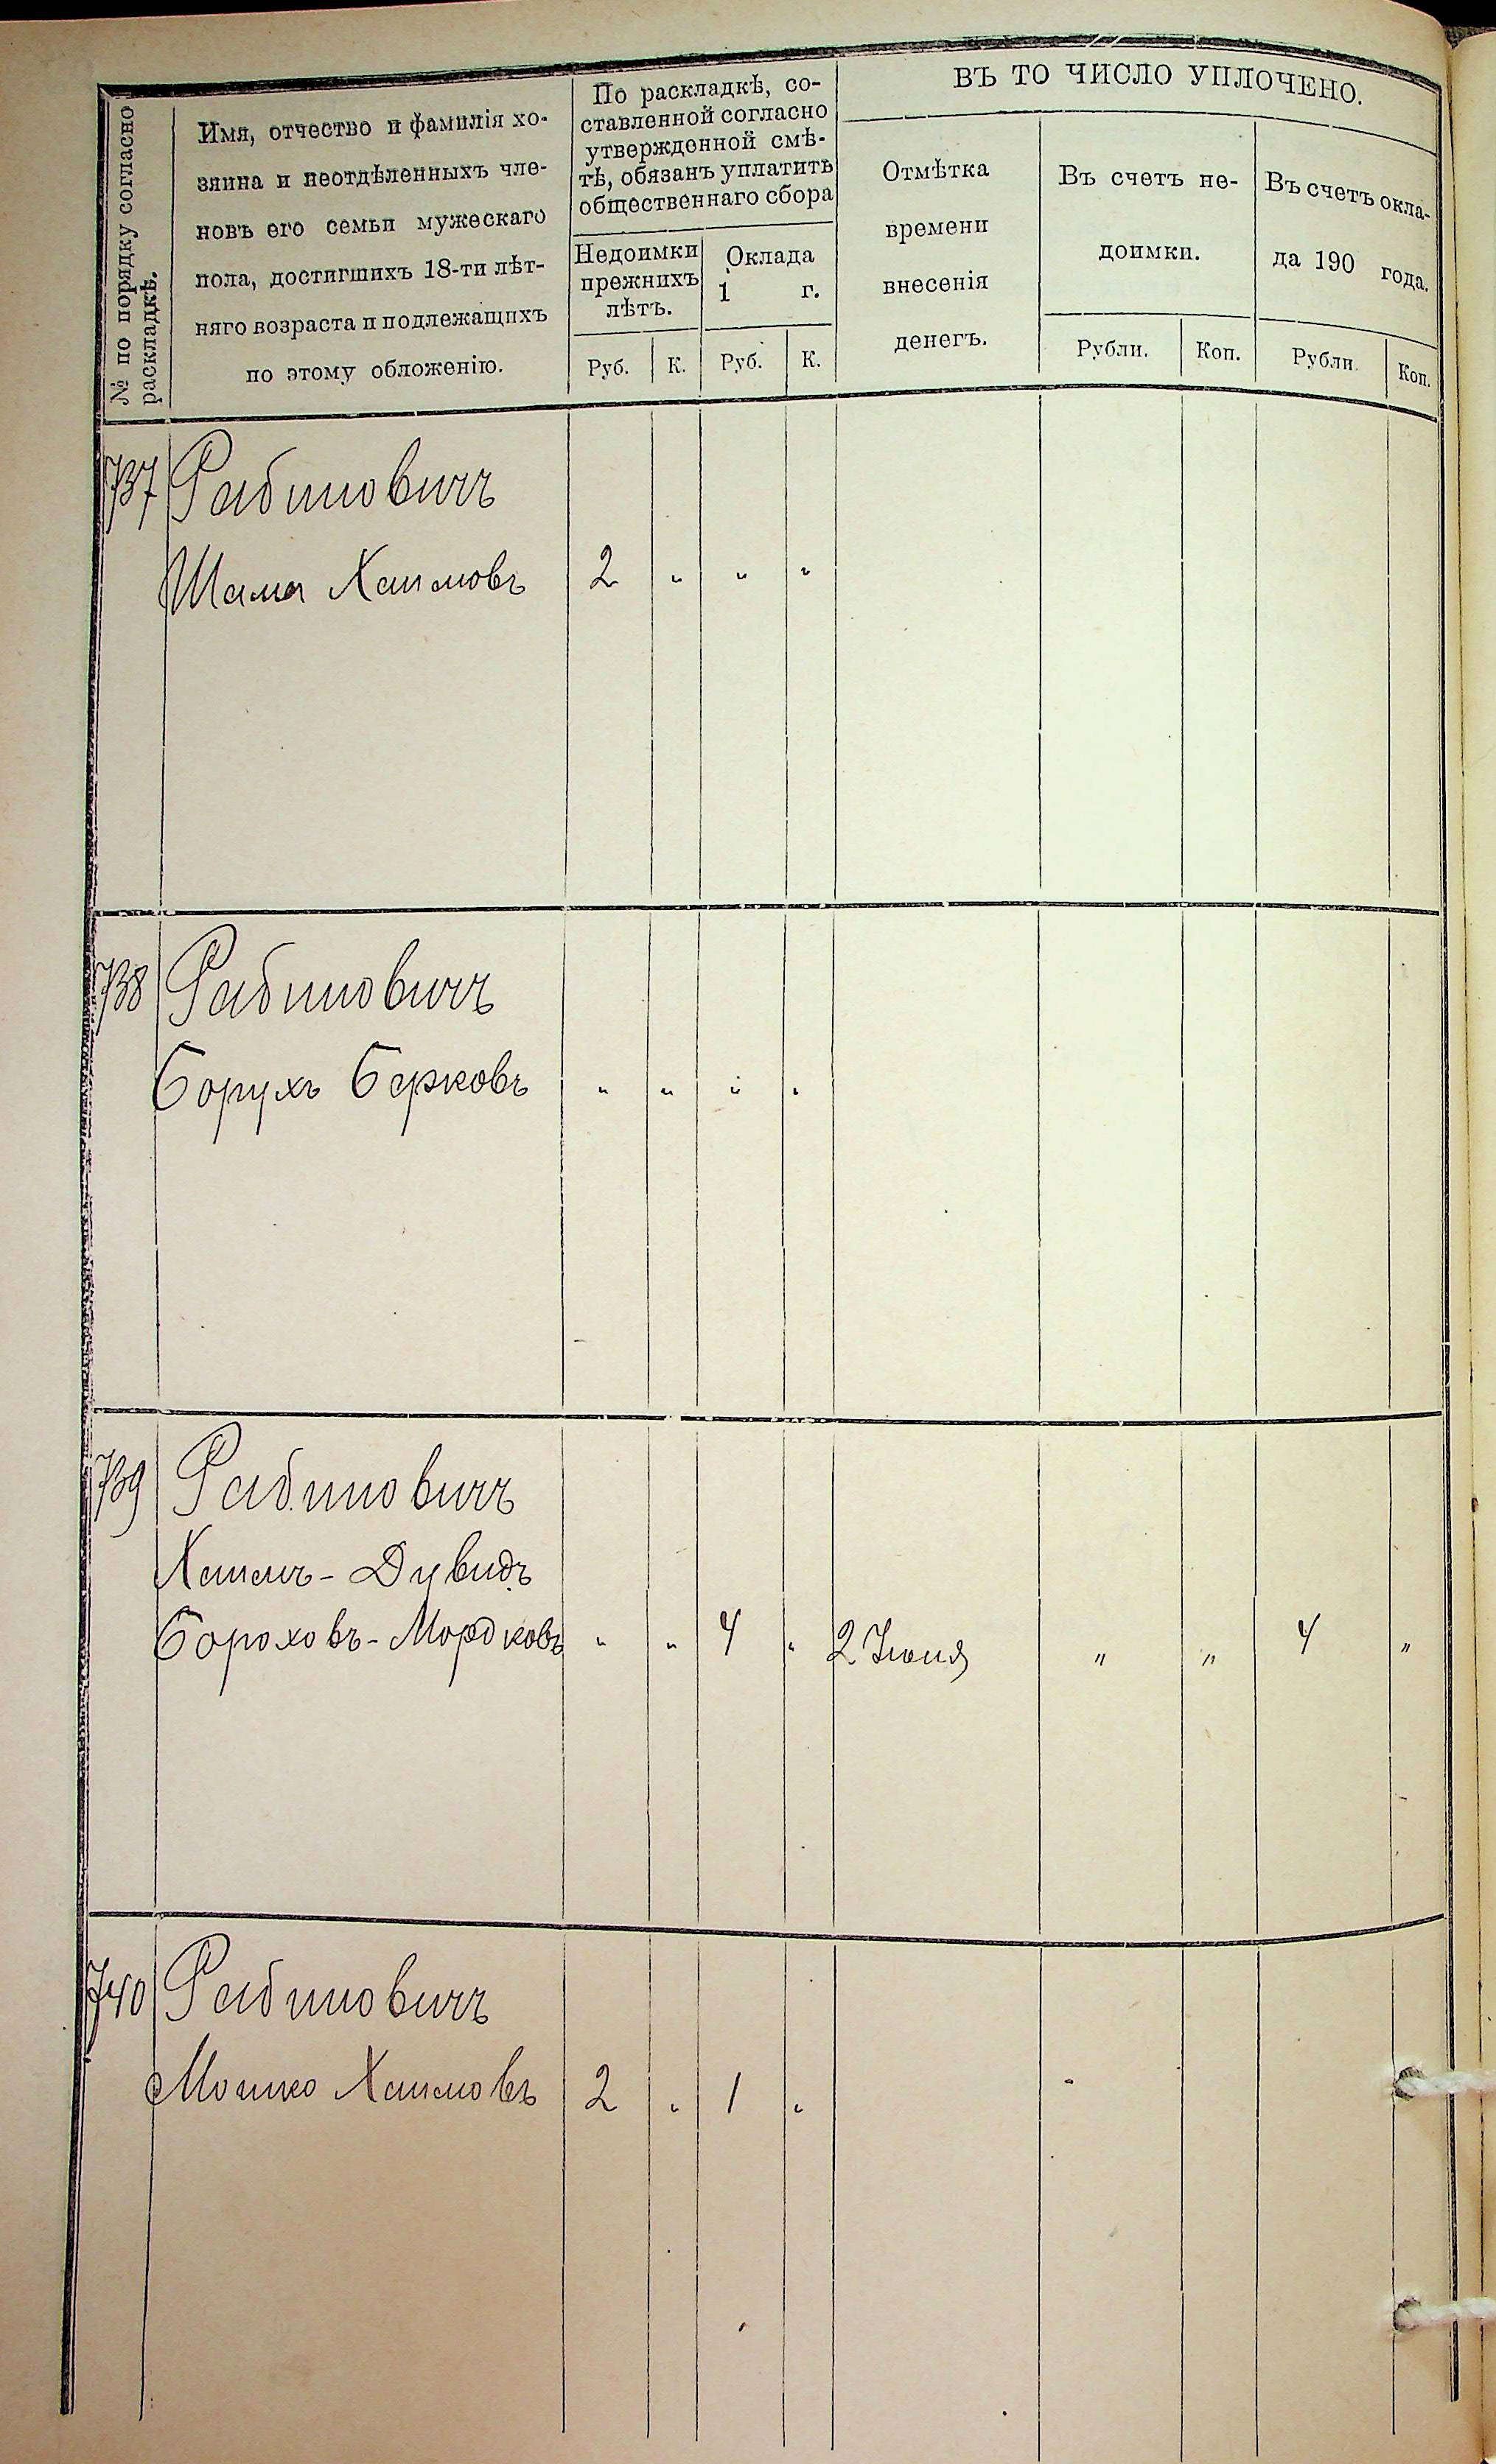 № по порядку согласно раскладкѣ.
Имя, отчество и фамилія хо-
зяина и неотдѣленныхъ чле-
новъ его семьи мужескаго
пола, достигшихъ 18-ти лѣт-
няго возраста и подлежащихъ
по этому обложенію.
По раскладкѣ, со-
ставленной согласно
утвержденной смѣ-
тѣ, обязанъ уплатить
общественнаго сбора
Недоимки
прежнихъ
лѣтъ.
Оклада
1 г.
Руб. К. Руб. К.
ВЪ ТО ЧИСЛО УПЛОЧЕНО.
Отмѣтка
времени
внесенія
денегъ.
Въ счетъ не-
доимки.
Рубли. Коп.
Въ счетъ окла-
да 190 года.
Рубли. Коп.
737 Рабиновичъ
Шама Хаимовъ 2 " " "
738 Рабиновичъ
Борухъ Берковъ " " " "
739 Рабиновичъ
Хаимъ-Дувидъ
Бороховъ-Мордковъ " " 4 " 2 Іюня " " 4 "
740 Рабиновичъ
Мошко Хаимовъ 2 " 1 "